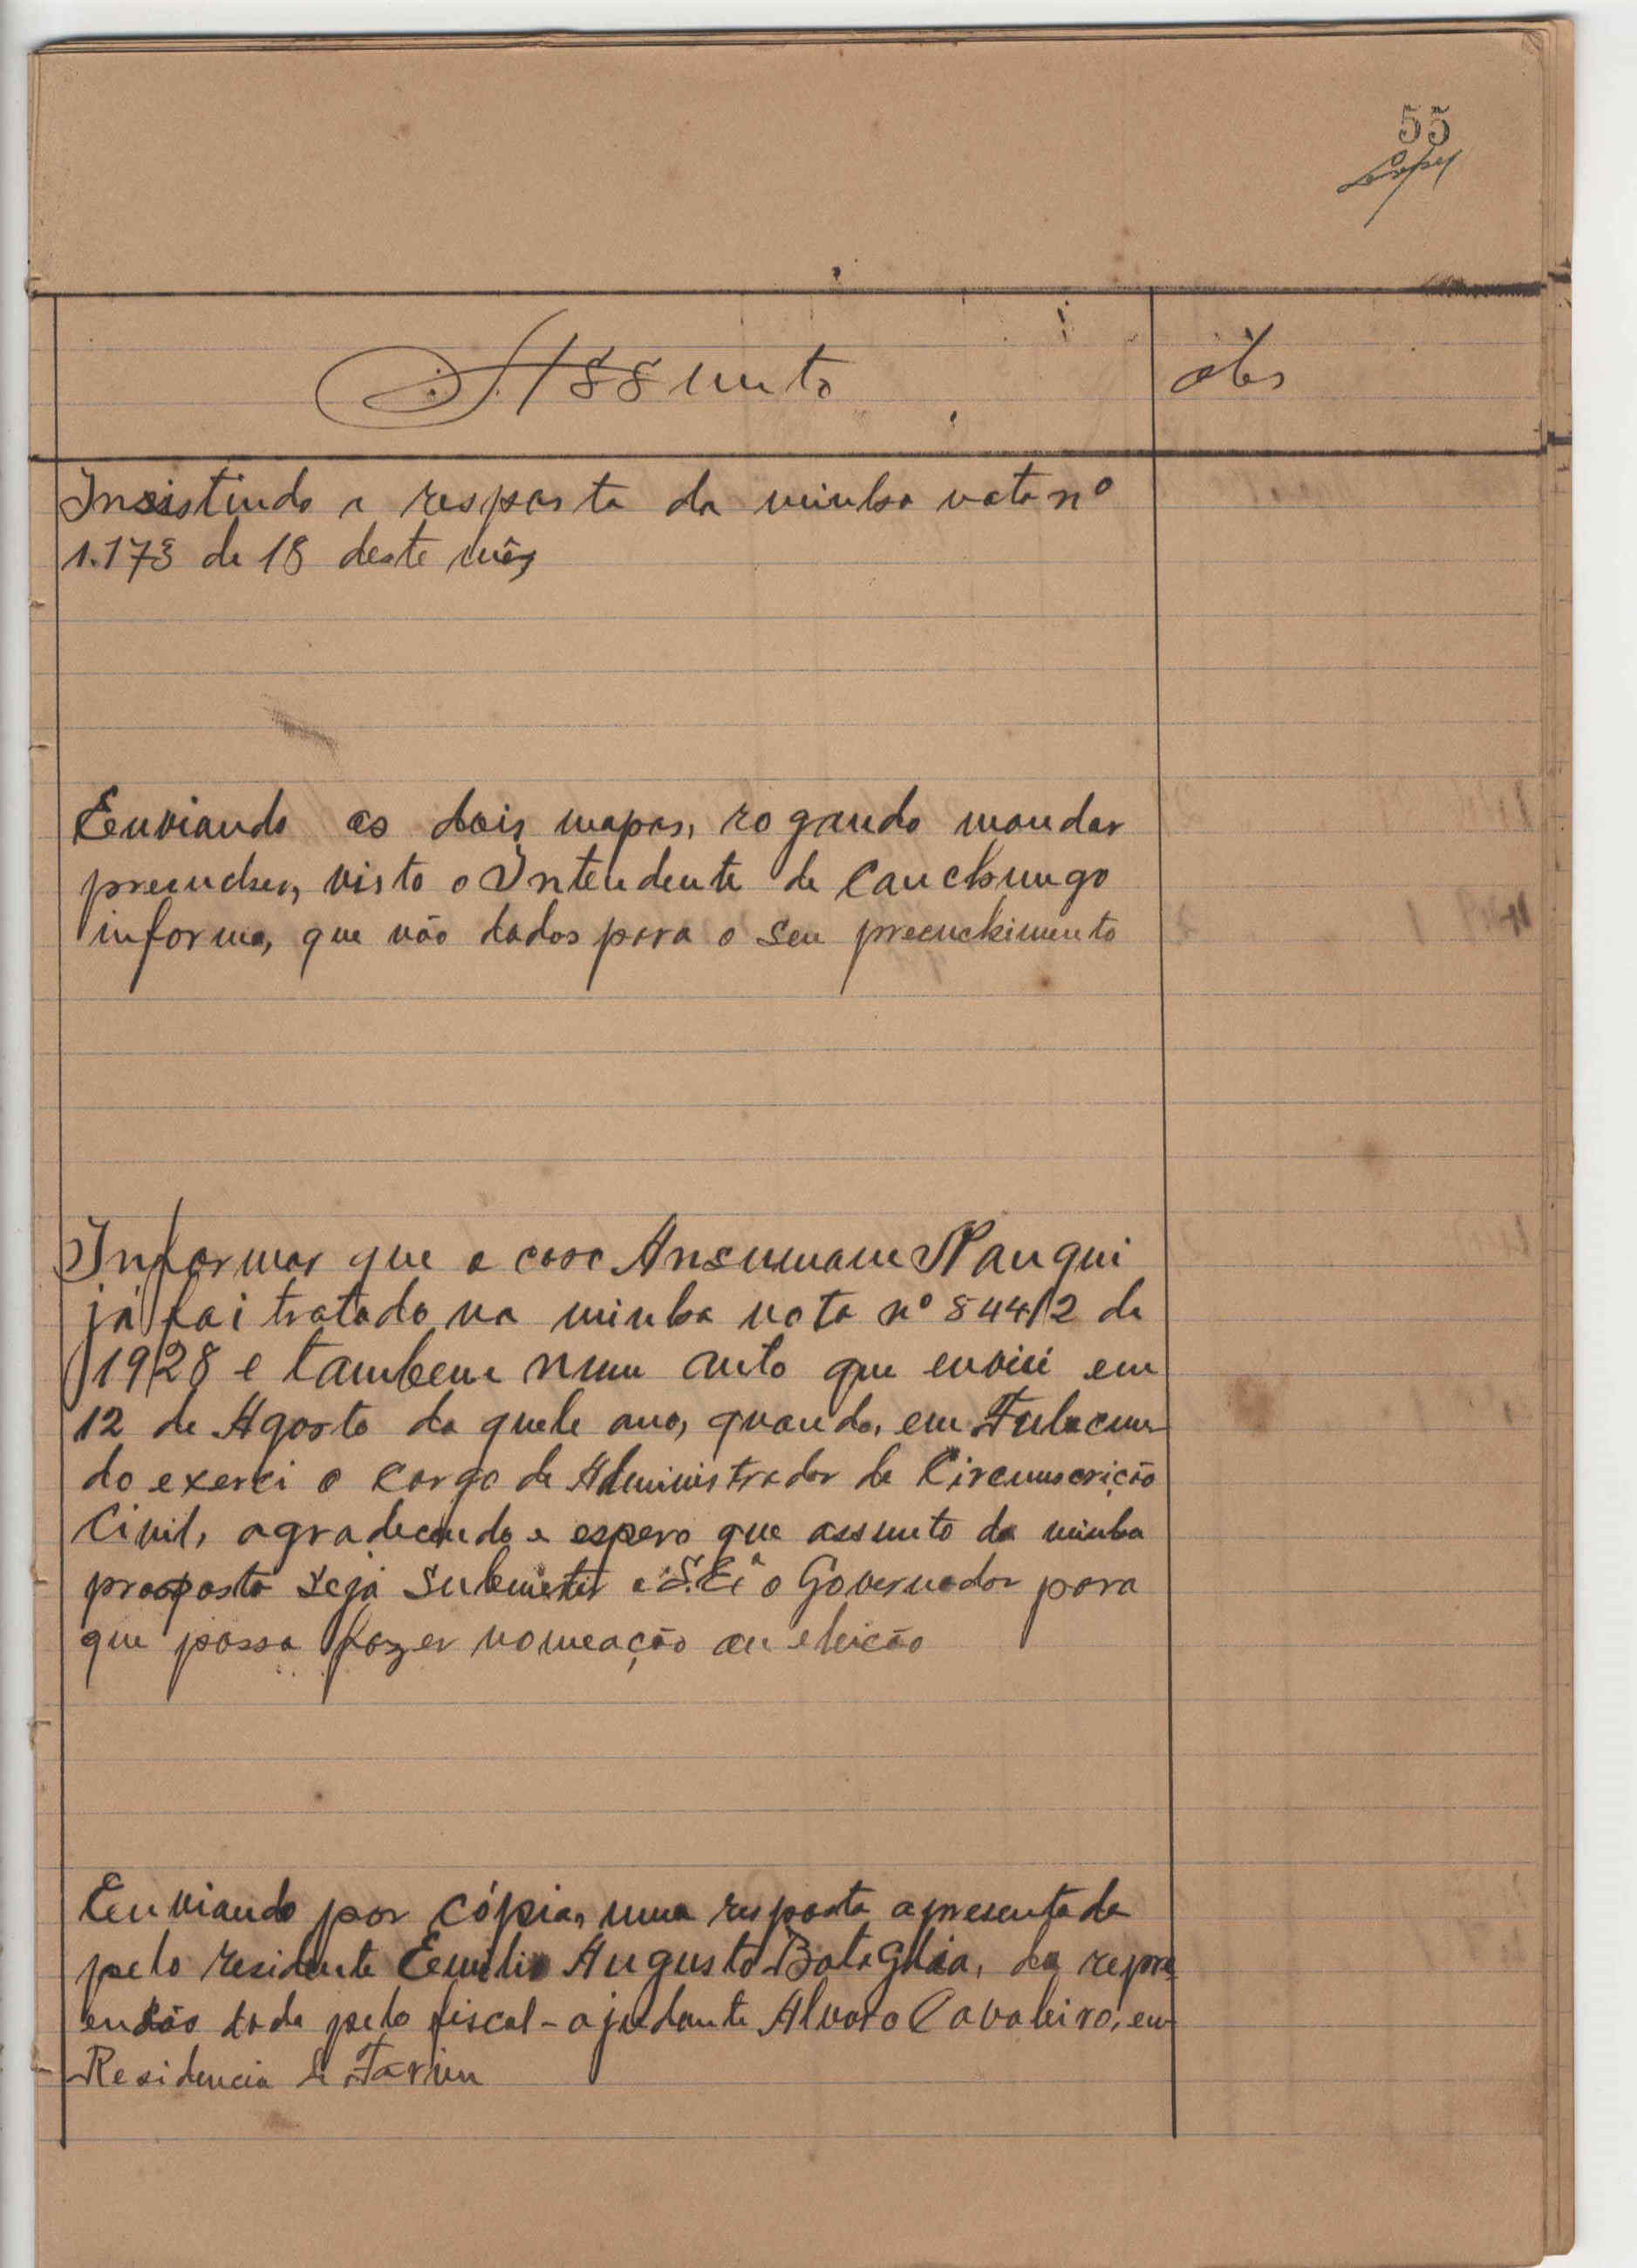 55
Assunto
obs
Insistindo a resposta da minha nota nº
1.173 de 18 deste mês
Enviando os dois mapas, rogando mandar
preencher, visto o Intendente de Canchungo
informa, que não dados para o seu preenchimento
Informar que o caso Ansumane Nanqui
já foi tratado na minha nota nº 844/2 de
1928 e tambem num auto que enviei em
12 de Agosto da quele ano, quando, em Fulacun-
do exerci o cargo de Administrador de Circunscrição
Civil, agradecendo e espero que assunto da minha
proposta seja submeter a S. Eª o Governador para
que possa fazer nomeação ou eleicão
Enviando por cópia, uma resposta apresentada
pelo residente Emilio Augusto Bataglia, da repre
ensão dada pelo fiscal-ajudante Alvaro Cavaleiro, em
Residencia de Farim